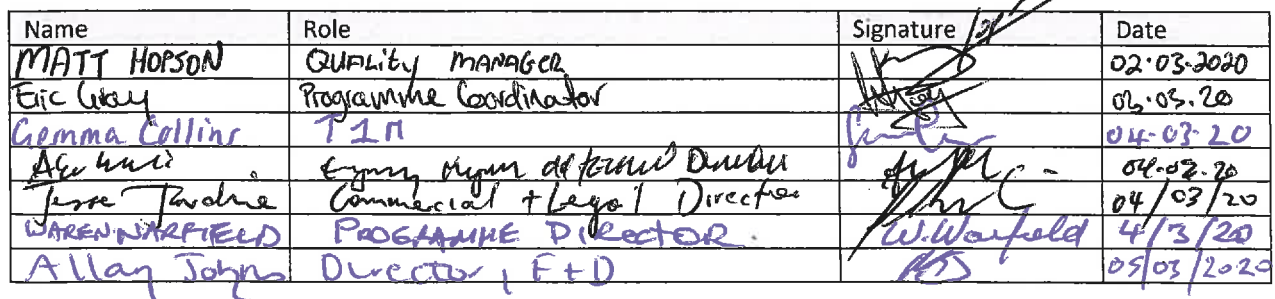 Name Role Signature Date
MATT HOPSON QUALITY MANAGER 02.03.2020
Eric Gray Programme Coordinator 03.03.20
Gemma Collins T1M 04-03-20
Director 04.03.20
Jesse Jardine Commercial + Legal Director 04/03/20
WAREN WARFIELD PROGRAMME DIRECTOR. W. Warfield 4/3/20
Allan Johns Director, E+D 05/03/2020